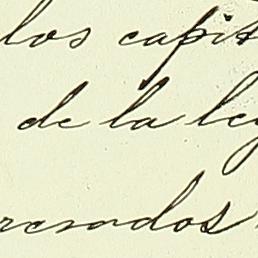 los capit
de la ley
resados